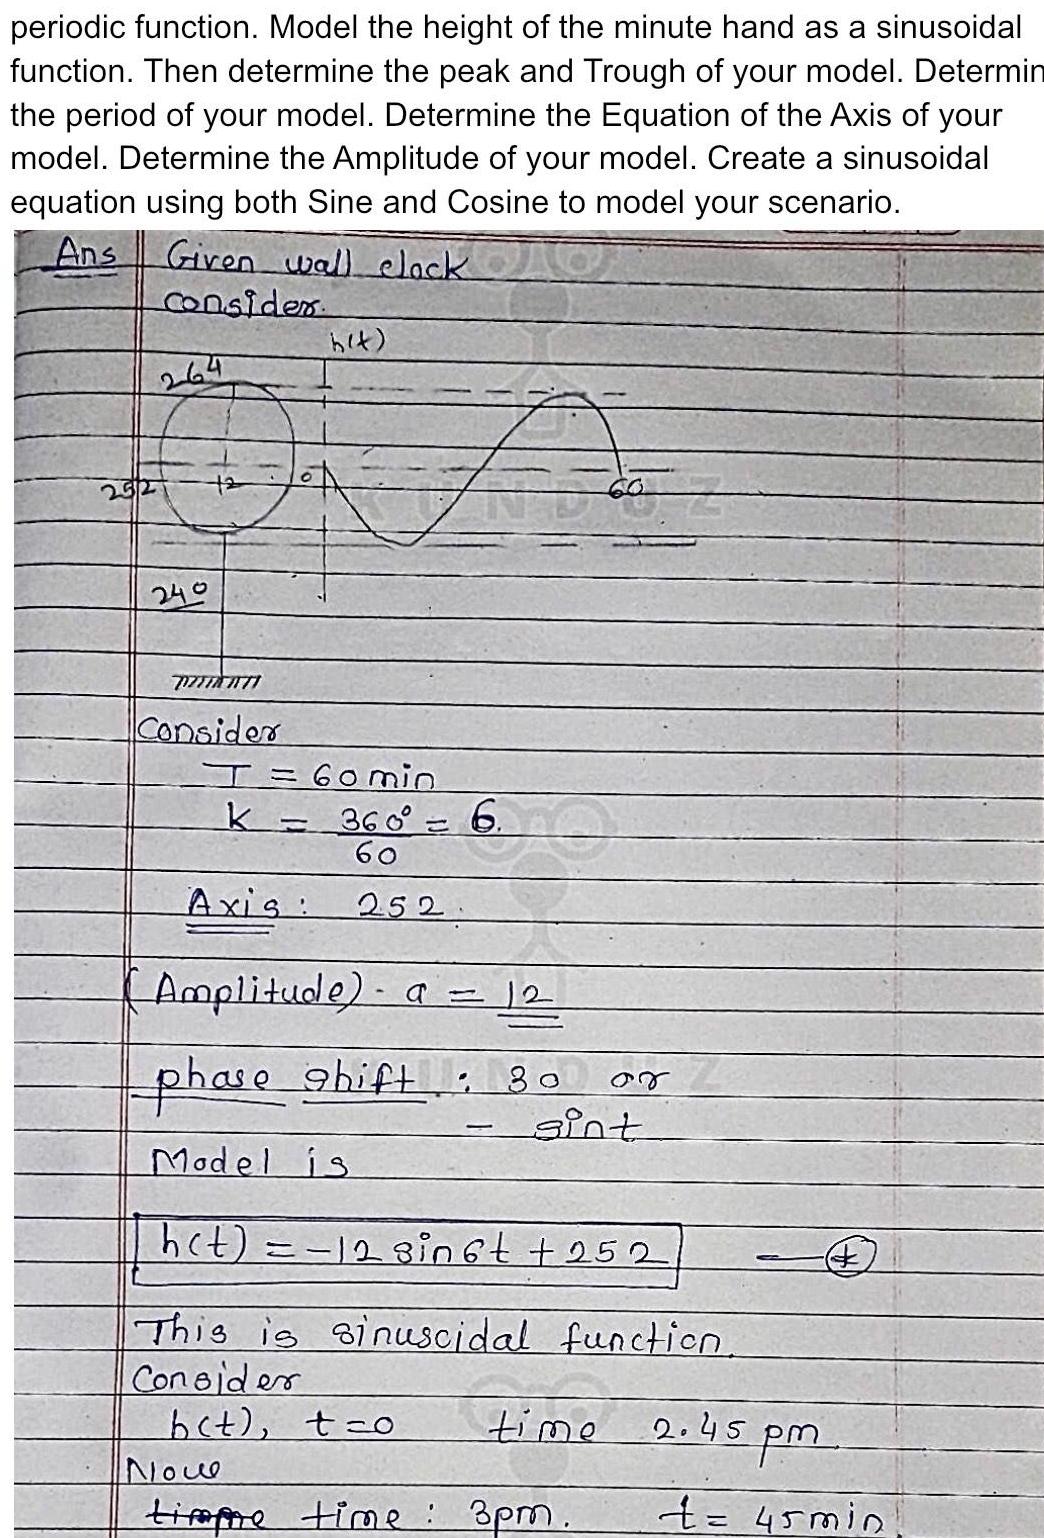 periodic function. Model the height of the minute hand as a sinusoidal
function. Then determine the peak and Trough of your model. Determin
the period of your model. Determine the Equation of the Axis of your
model. Determine the Amplitude of your model. Create a sinusoidal
equation using both Sine and Cosine to model your scenario.
Ans Given wall clock
consider.
h(t)
264
252 12 0 60
KUNDUZ
240
Consider
T = 60 min
k = 360° = 6.
60
Axis: 252.
(Amplitude) - a = 12
KUNDUZ
phase shift : 30 or
- sint
Model is
h(t) = -12 sin 6t + 252 —(*)
This is sinuscidal function.
Consider
h(t), t=0 time 2.45 pm
Now
time : 3pm. t = 45 min